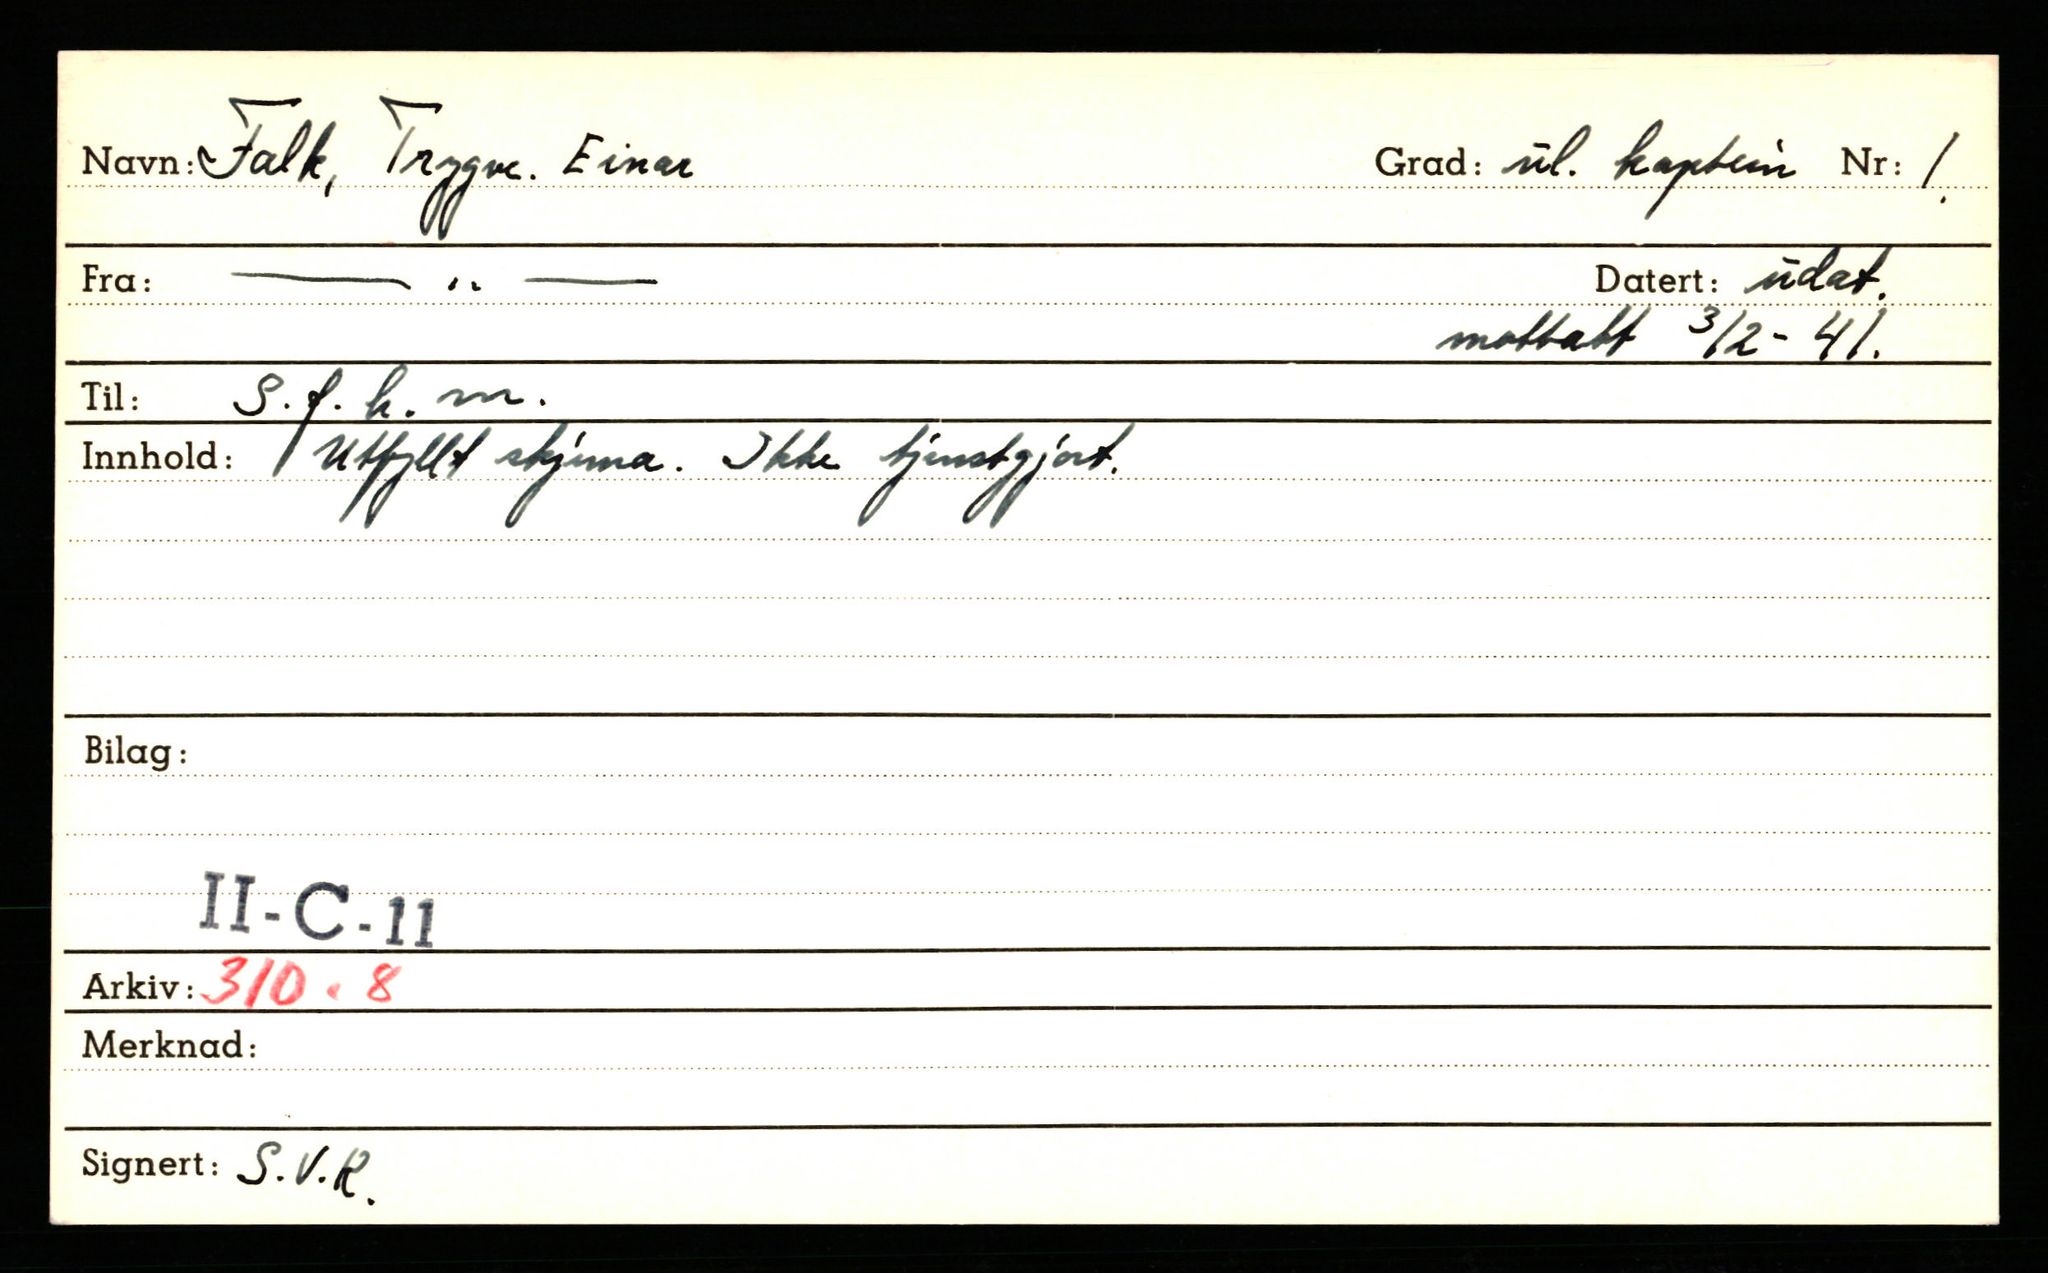 Navn: Falk, Trygve. Einar Grad: ūl. kaptein Nr: 1.
Fra: — " — Datert: ūdat.
mottatt 3/2-41.
Til: S.f.k.m.
Innhold: Utfyllt skjema. Ikke tjenstgjort.
Bilag:
II-C-11
Arkiv: 310.8
Merknad:
Signert: S.V.R.